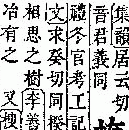 集韻居云切
音君義同
禮冬官考工記
文求癸切同
相思之樹 李善
冶有之 又